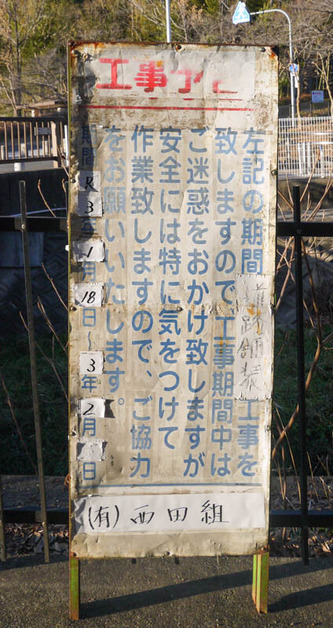 工事予告
左記の期間道路舗装工事を
致しますので工事期間中は
ご迷惑をおかけ致しますが
安全には特に気をつけて
作業致しますので、ご協力
をお願いいたします。
期間R3年1月18日〜3年2月 日
(有)西田組